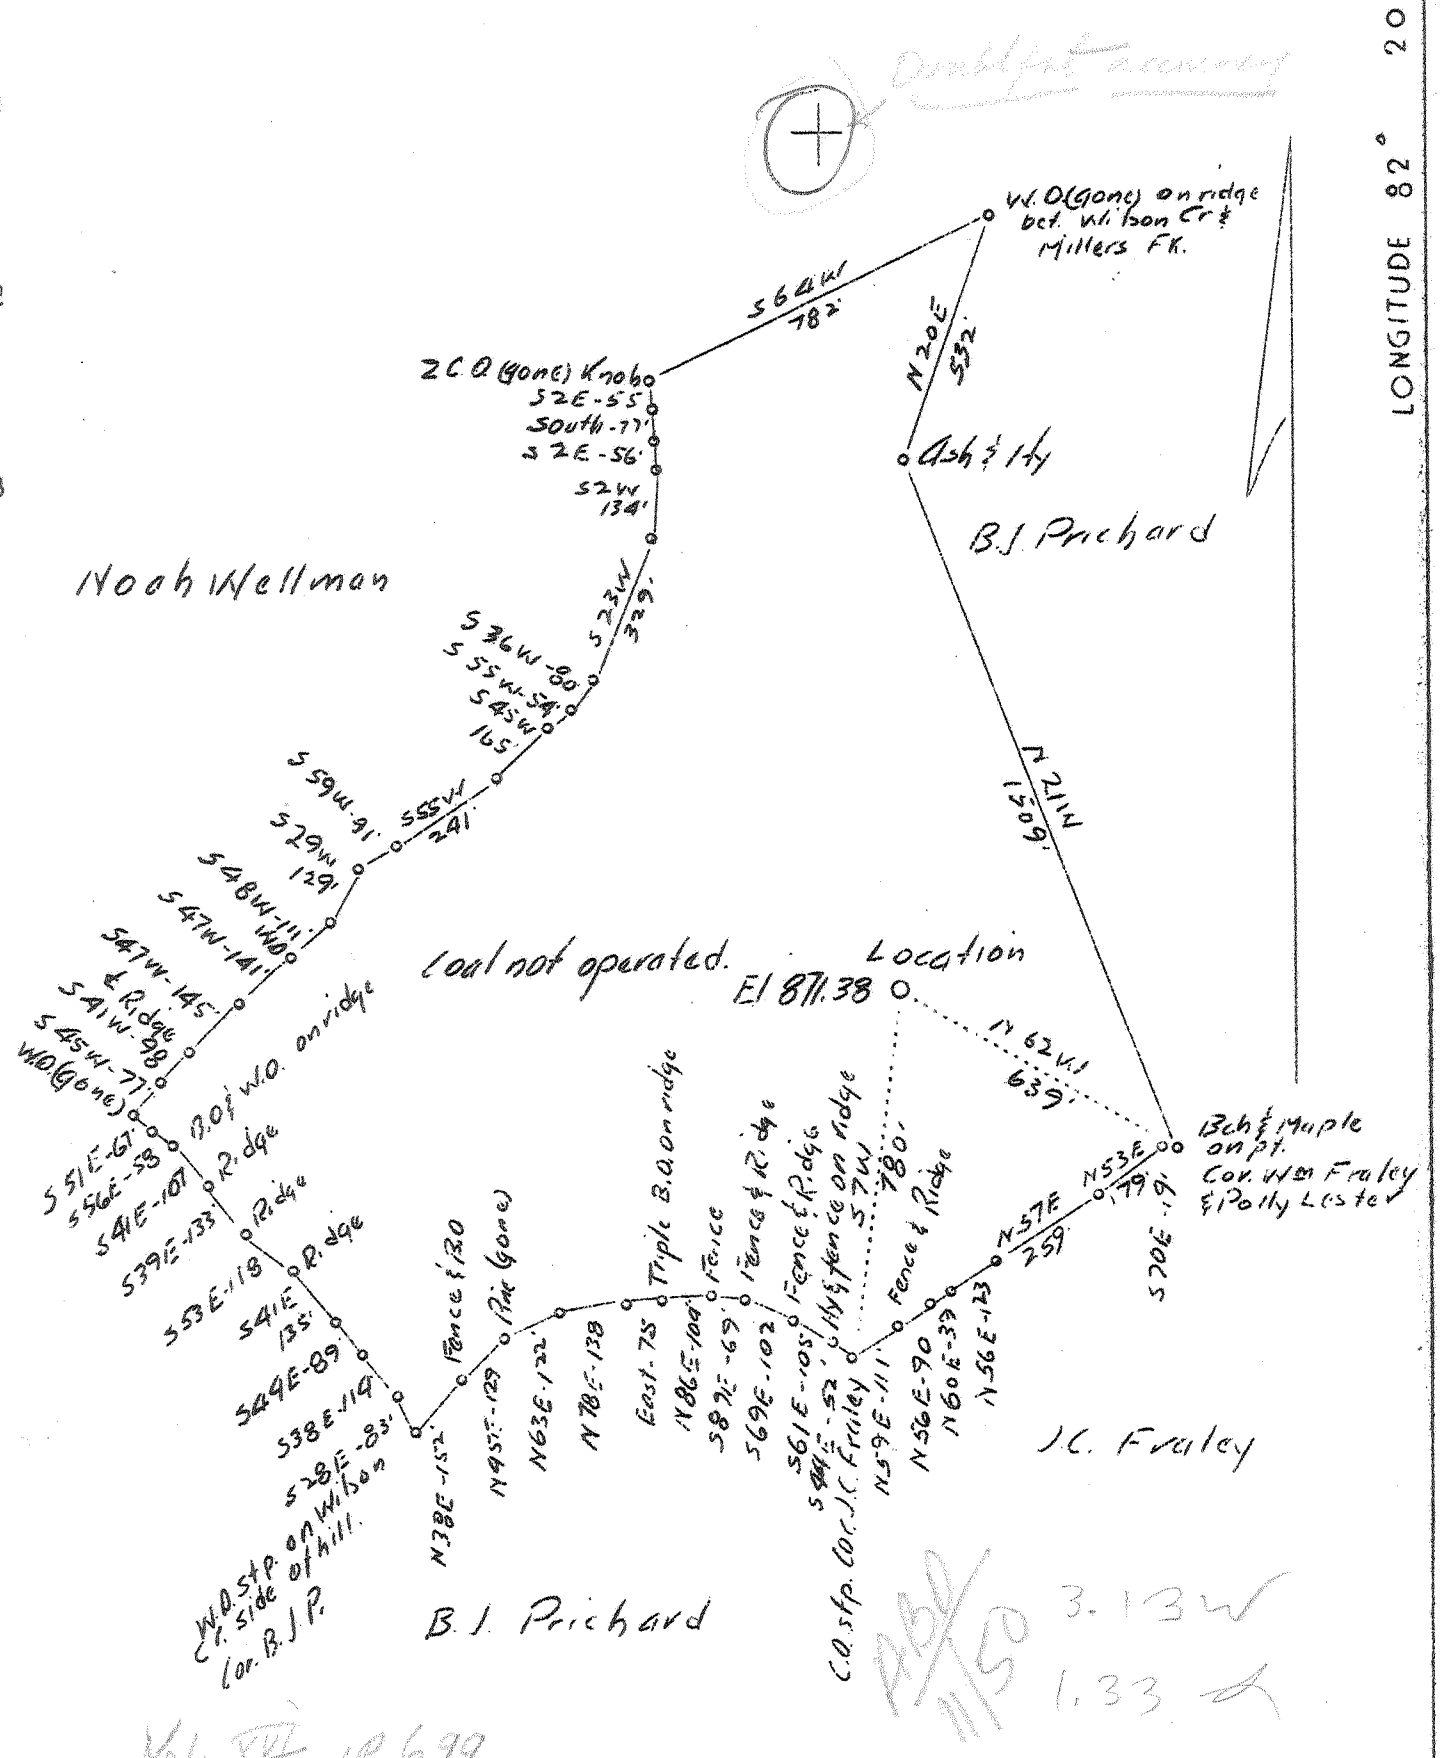 Doubtful accuracy
LONGITUDE 82° 20
W.O(gone) on ridge
bet. Wilson Cr &
Millers FK.
S 64 W
782'
N 20 E
532'
2 C.O. (gone) Knob
S2E-55
South-77'
S 2E-56'
S2W
134'
Ash & Hy
B.J. Prichard
Noah Wellman
S 23W
329'
S 36W-80'
S 55W-54'
S 45W
165'
S55W
241'
S 59W-91'
S 29W
129'
S 48W-111'
W.O.
S 47W-141'
S47W-145'
& Ridge
S 41W-98
S 45W-77'
W.O.(gone)
N 21W
1509'
Coal not operated.
Location
El 871.38
N 62W
639'
S7W
780'
B.O & W.O. on ridge
S 51E-67'
S56E-58
S41E-107
Ridge
S39E-133'
Ridge
S53E-118
Ridge
S41E
135'
S44E-89'
S38E-114'
S28E-83'
W.O. stp. on Wilson
Cr. side of hill.
Cor. B.J.P.
N38E-152'
Fence & B.O
N45E-129
Pine (gone)
N63E-122'
N78E-138
East-75'
Triple B.O. on ridge
N86E-104'
Fence
S87E-69'
Fence & Ridge
S69E-102
Fence & Ridge
S61E-105'
Hy & fence on ridge
S44E-52'
C.O. stp. Cor. J.C. Fraley
N59E-111'
Fence & Ridge
N56E-90
N60E-39
N56E-123
N57E
259'
N53E
179'
S70E-19'
Bch & Maple
on pt.
Cor. Wm Fraley
& Polly Lester
J.C. Fraley
B.J. Prichard
11/50
3.13 W
1.33
Vol. XVI p 699